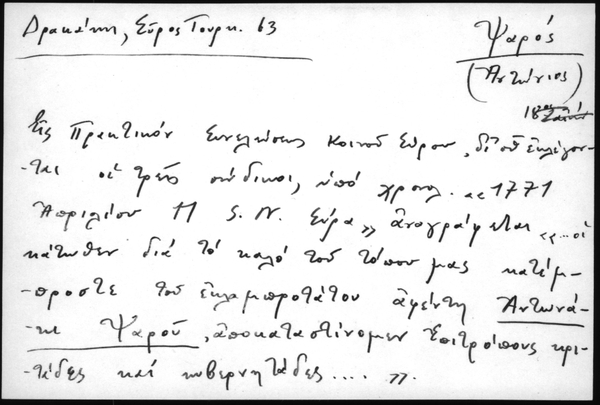 Δρακάκη, Σῦρος Τουρκ. 63
Ψαρός
(Ἀντώνιος)
18ος
Εἰς Πρακτικόν Συνελεύσεως Κοινοῦ Σύρου, δι' οὗ ἐκλέγον-
-ται οἱ τρεῖς σύνδικοι, ὑπό χρονολ. «1771
Ἀπριλίου 11 S. N. Σύρα» ἀναγράφεται «...οἱ
κάτωθεν διά τό καλό τοῦ τόπου μας κατέμ-
-προστε τοῦ ἐκλαμπροτάτου ἀφέντη Ἀντωνά-
-κι Ψαροῦ, ἀποκαταστίνομεν ἐπιτρόπους κρι-
-τάδες καί κυβερνητάδες.... ».